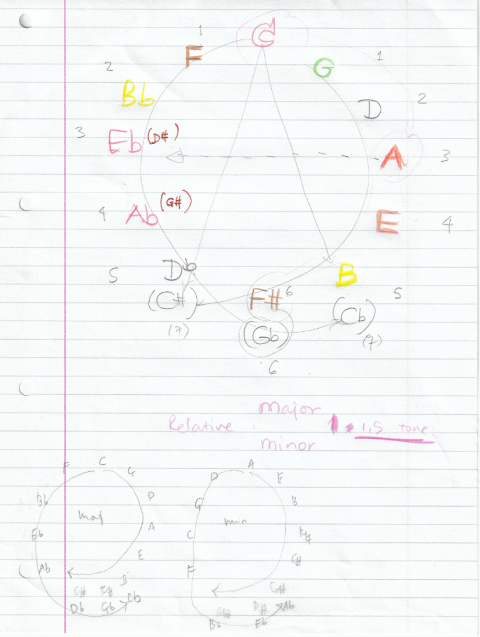 C
1 F G 1
2 Bb D 2
3 Eb (D#) A 3
4 Ab (G#) E 4
5 Db B 5
(C#) F# 6 (Cb)
(7) (Gb) (7)
6
Relative major 1.5 tone
minor
F C G
Bb D
maj
Eb A
Ab E
B
C# F#
Db Gb Cb
D A E
G B
min
C F#
F C#
G#
A# D# Ab
Bb Eb